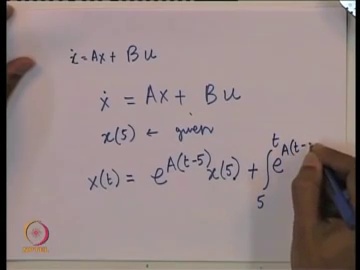 ẋ = Ax + Bu
ẋ = Ax + Bu
x(5) ← given
x(t) = e^{A(t-5)} x(5) + ∫_5^t e^{A(t-
NPTEL